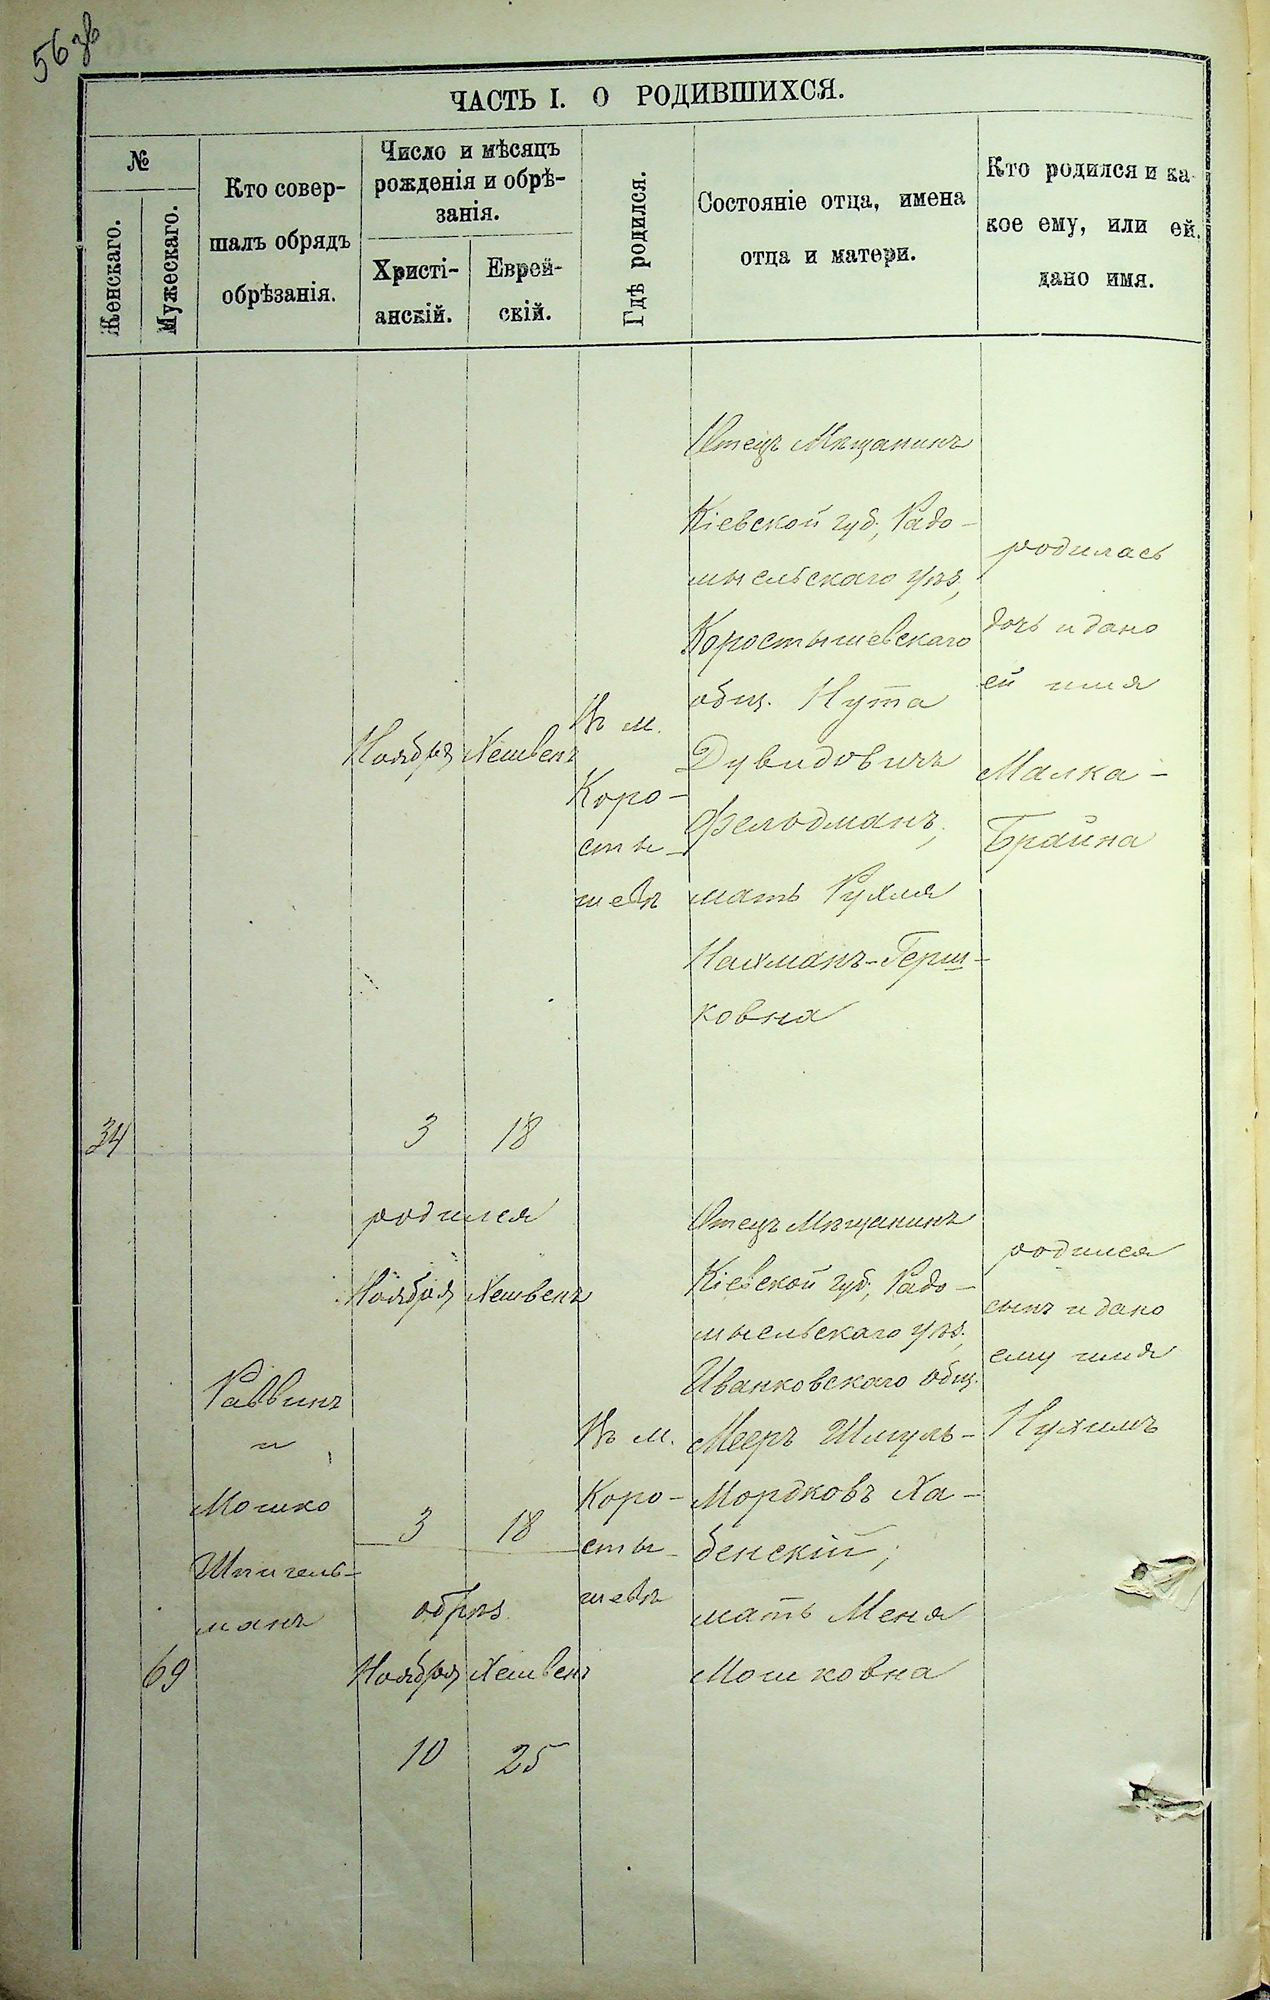 56 зв
ЧАСТЬ I. О РОДИВШИХСЯ.
№
Женскаго.
Мужескаго.
Кто совер-
шалъ обрядъ
обрѣзанія.
Число и мѣсяцъ
рожденія и обрѣ-
занія.
Христі-
анскій.
Еврей-
скій.
Гдѣ родился.
Состояніе отца, имена
отца и матери.
Кто родился и ка-
кое ему, или ей.
дано имя.
34
Ноября Хешвенъ
3 18
Въ м.
Коро-
сты-
шевѣ
Отецъ Мѣщанинъ
Кіевской губ., Радо-
мысльскаго уѣз.,
Коростышевскаго
общ. Нута
Дувидовичъ
Фельдманъ,
мать Рухля
Нахманъ-Герш-
ковна
родилась
дочь и дано
ей имя
Малка-
Брайна
69
Раввинъ
и
Мошко
Шпигель-
манъ
родился
Ноября Хешвенъ
3 18
обрѣз.
Ноября Хешвенъ
10 25
Въ м.
Коро-
сты-
шевѣ
Отецъ Мѣщанинъ
Кіевской губ., Радо-
мысльскаго уѣз.
Иванковскаго общ.
Мееръ Шмуль-
Мордковъ Ха-
бенскій,
мать Меня
Мошковна
родился
сынъ и дано
ему имя
Нухимъ